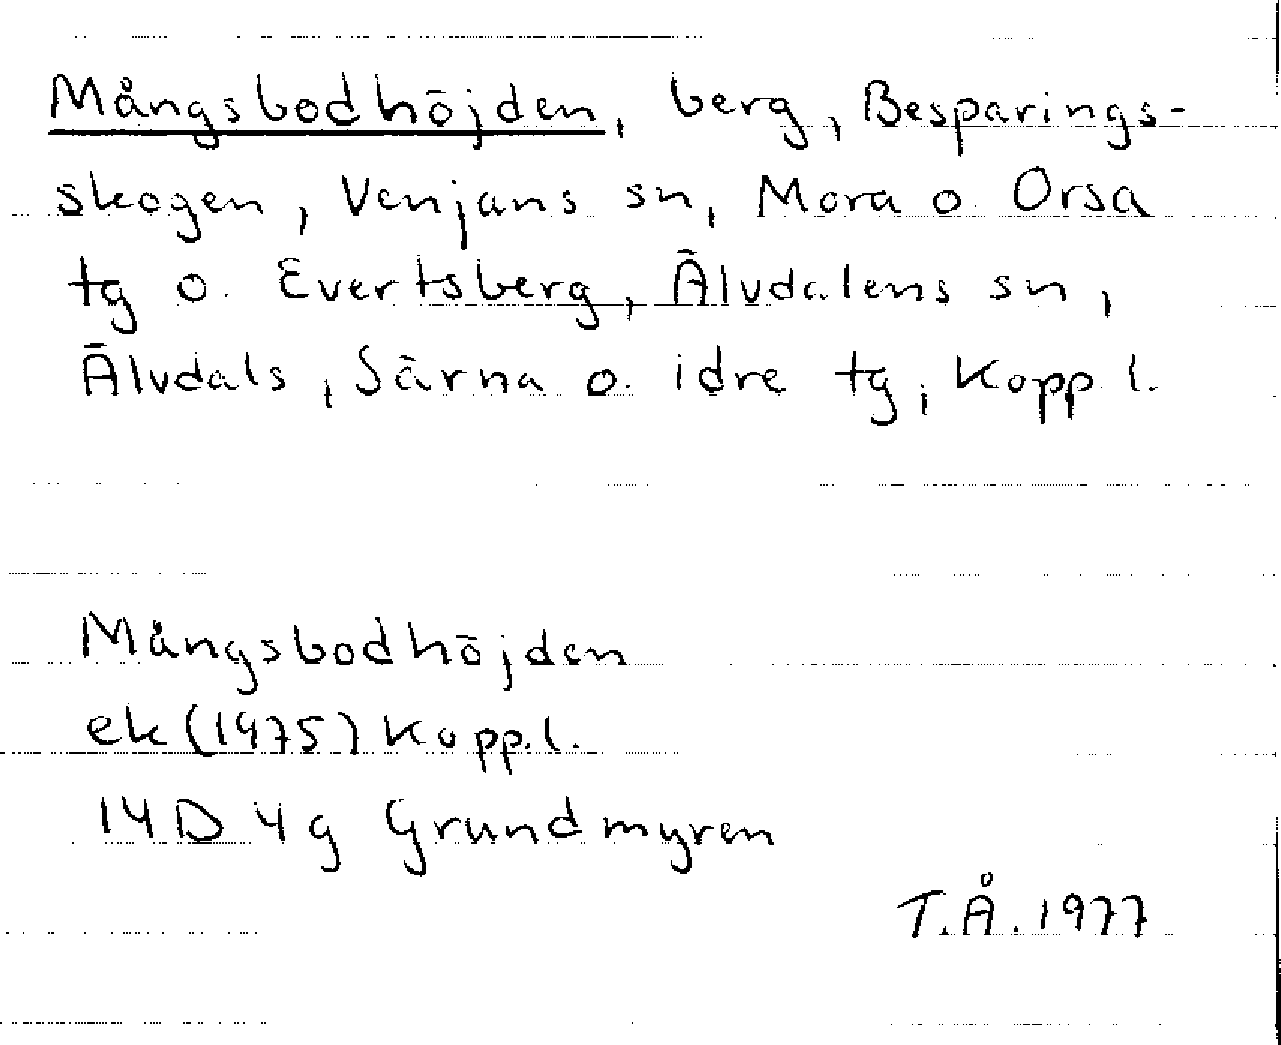 Mångsbodhöjden, berg, Besparings-
skogen, Venjans sn, Mora o. Orsa
tg o. Evertsberg, Älvdalens sn,
Älvdals, Särna o. idre tg, Kopp l.
Mångsbodhöjden
ek (1975) Kopp.l.
14D 4g Grundmyren
T.Å. 1977